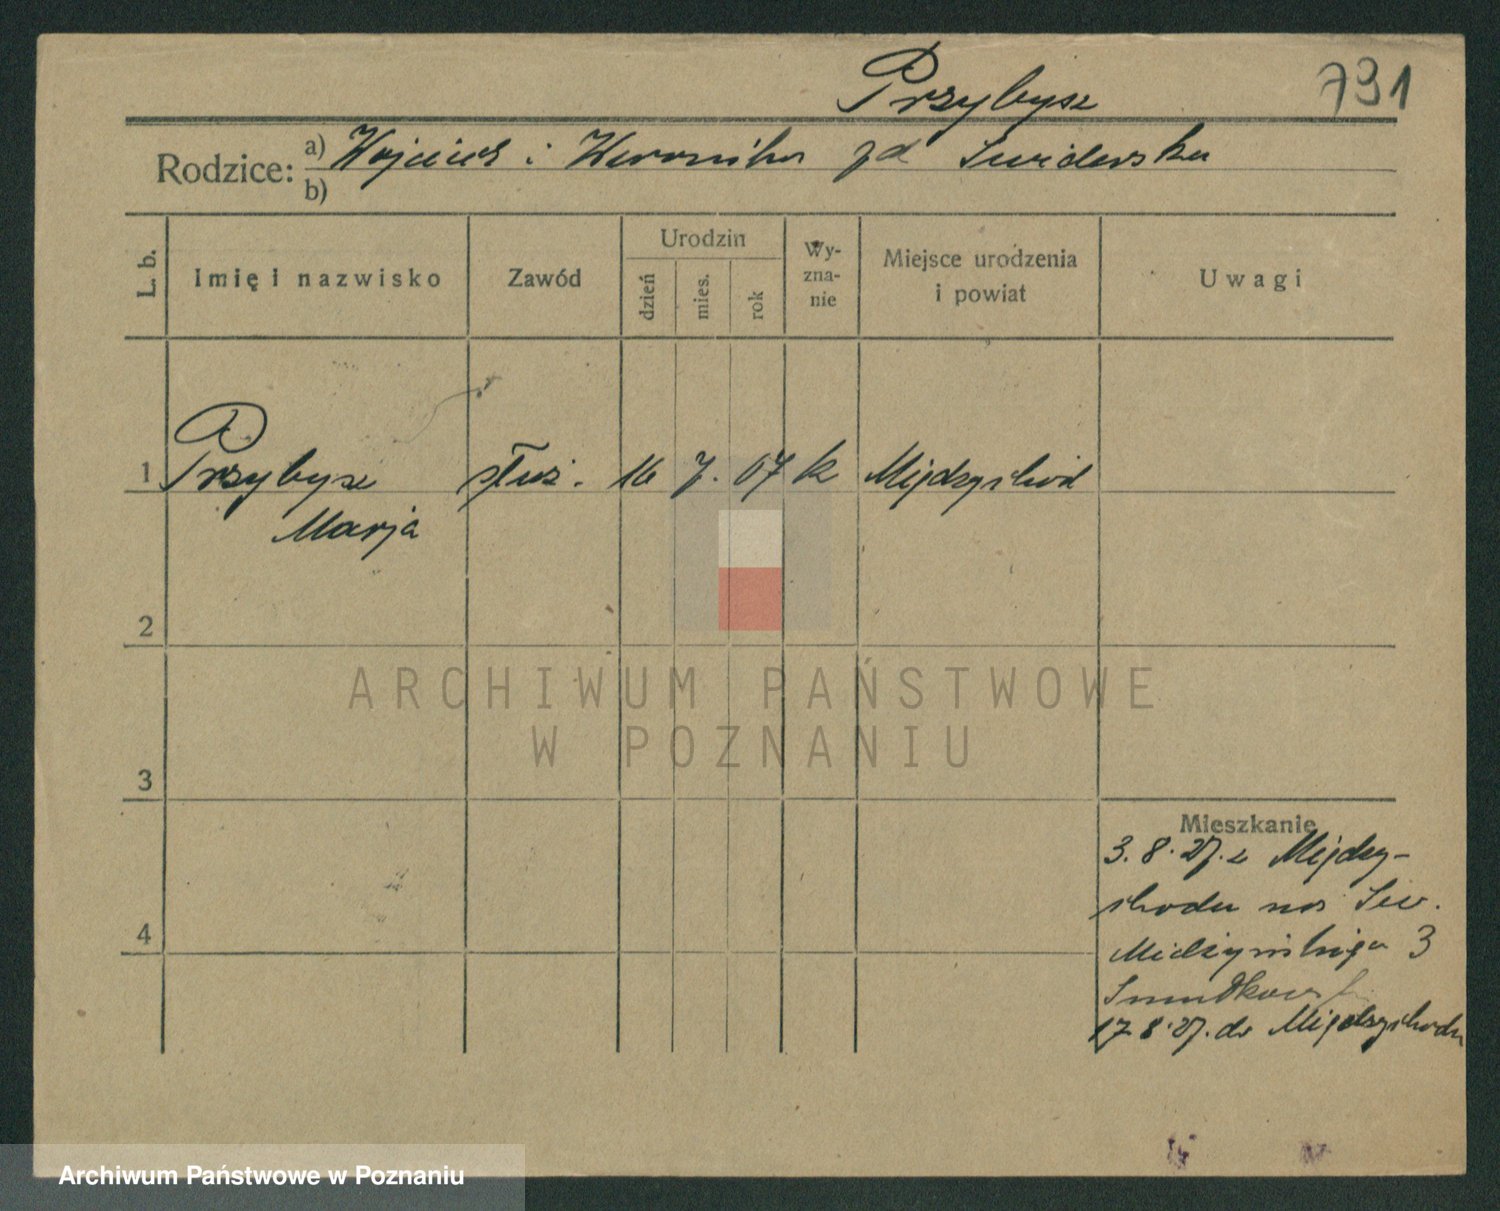 Przybysz 791
Rodzice: a) Wojciech i Weronika zd Świderska
b)
L. b. Imię i nazwisko Zawód Urodzin dzień mies. rok Wy-zna-nie Miejsce urodzenia i powiat Uwagi
1 Przybysz służ. 16 7. 07 k Międzychód
Marja
2
ARCHIWUM PAŃSTWOWE
W POZNANIU
3
Mieszkanie
3. 8. 27. z Między-
chodu na
4
3
17 8. 27. do Międzychodu
Archiwum Państwowe w Poznaniu